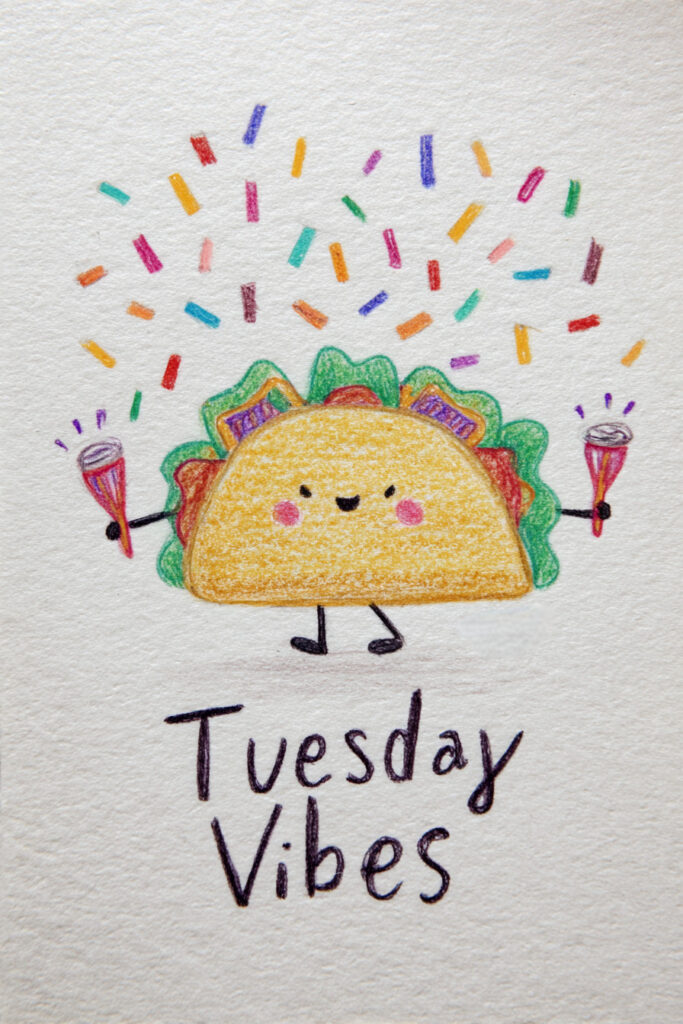 Tuesday
Vibes